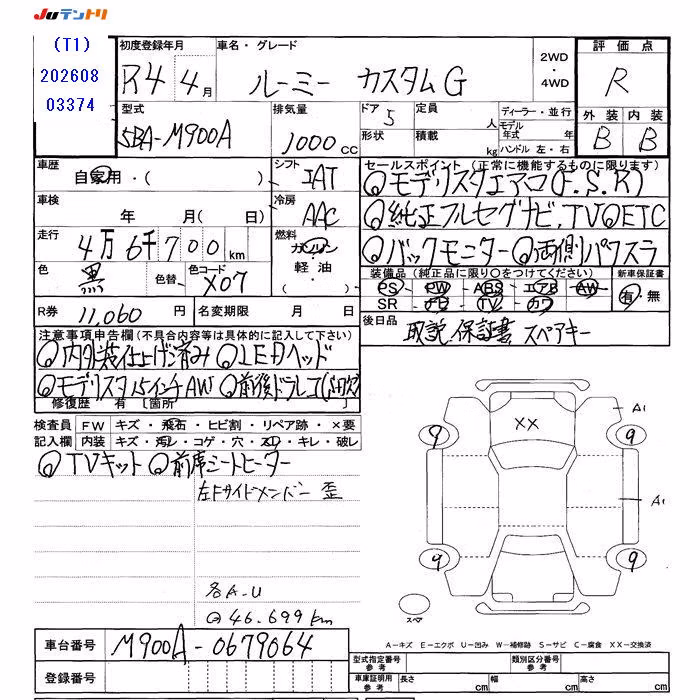 JUテントリ
(T1)
202608
03374
初度登録年月
R4 4月
車名・グレード
ルーミー カスタムG
2WD
・
4WD
評価点
R
外装 内装
B B
型式
5BA-M900A
排気量
1000cc
ドア
5
形状
定員
人
積載
kg
ディーラー・並行
モデル年式 年
ハンドル 左・右
車歴
自家用・( )
車検
年 月( 日)
走行
4万6千700km
色
黒
色替
色コード
X07
シフト
IAT
冷房
AAC
燃料
ガソリン
軽油・
( )
セールスポイント (正常に機能するものに限ります)
◎モデリスタエアロ(F.S.R)
◎純正フルセグナビ,TV◎ETC
◎バックモニター◎両側パワスラ
装備品 (純正品に限り○をつけてください)
PS PW ABS エアB AW
SR ナビ TV カワ
新車保証書
有・無
R券
11,060円
名変期限 月 日
後日品
取説,保証書 スペアキー
注意事項申告欄(不具合内容等は具体的に記入して下さい)
◎内外装仕上げ済み ◎LEDヘッド
◎モデリスタ15インチAW ◎前後ドラレコ
修復歴 有 [箇所
検査員
記入欄
FW キズ・飛石・ヒビ割・リペア跡・×要
内装 キズ・汚レ・コゲ・穴・スレ・キレ・破レ
◎TVキット ◎前席シートヒーター
左Fサイドメンバー 歪
各A-U
@46.699km
XX
A1
9 9
A1
9 9
スペア
A-キズ E-エクボ U-凹み W-補修跡 S-サビ C-腐食 XX-交換済
車台番号
M900A-0679064
登録番号
型式指定番号
参考
類別区分番号
参考
車庫証明用
参考
長さ cm
幅 cm
高さ cm